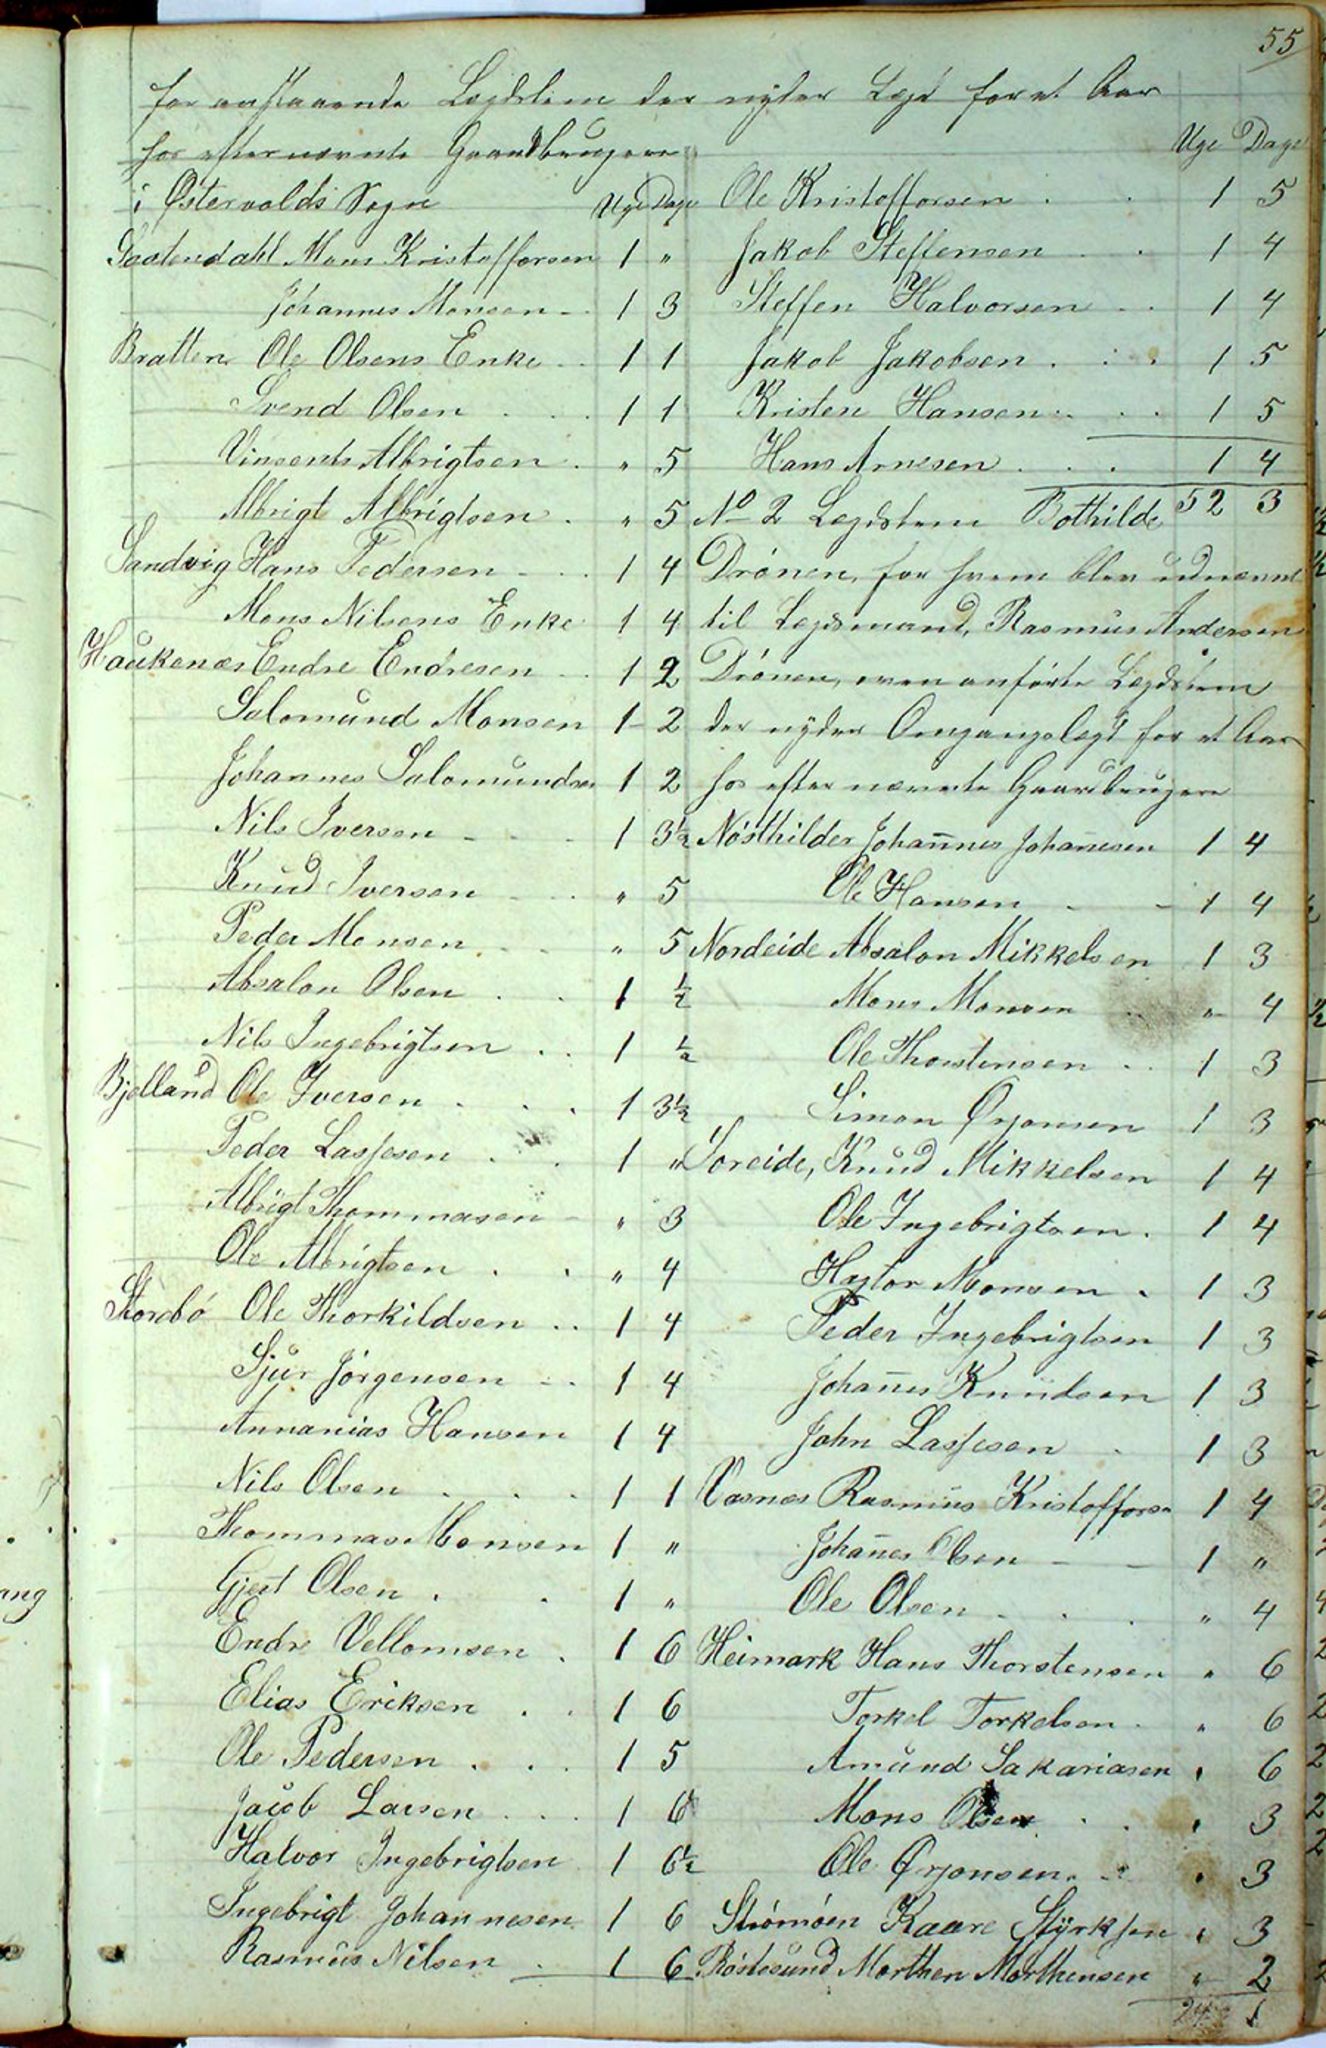 55
foranstaaende Lægdslem der nyder Lægd for et Aar
hos efternævnte Gaardbrugere
i Østervolds Sogn Uge Dage
Mons Kristoffersen 1 "
Johannes Monsen 1 3
Bratten Ole Olsens Enke 1 1
Svend Olsen 1 1
Vinsents Albrigtsen " 5
Albrigt Albrigtsen " 5
Sandvig Hans Pedersen 1 4
Mons Nilsens Enke 1 4
Haukenæs Endre Endresen 1 2
Salomund Monsen 1 2
Johannes Salomundsen 1 2
Nils Iversen 1 3½
Knud Iversen " 5
Peder Monsen " 5
Absalon Olsen 1 ½
Nils Ingebrigtsen 1 ½
Bjelland Ole Iversen 1 3½
Peder Lassesen 1 "
Albrigt Thommasen " 3
Ole Albrigtsen " 4
Storebø Ole Thorkildsen 1 4
Sjur Jørgensen 1 4
Annanias Hansen 1 4
Nils Olsen 1 1
Thommas Monsen 1 "
Gjert Olsen 1 "
Endre Vellomsen 1 6
Elias Eriksen 1 6
Ole Pedersen 1 5
Jacob Larsen 1 6
Halvor Ingebrigtsen 1 6½
Ingebrigt Johannesen 1 6
Rasmus Nilsen 1 6
Uge Dage
Ole Kristoffersen 1 5
Jakob Steffensen 1 4
Steffen Halvorsen 1 4
Jakob Jakobsen 1 5
Kristen Hansen 1 5
Hans Arnesen 1 4
52 3
No 2 Lægdslem Bothilde
Drönen, for hvem blev udnævnt
til Lægdsmand, Rasmus Andersen
Drönen, ovenanførte Lægdslem
der nyder Omgangslægd for et Aar
hos efternævnte Gaardbrugere
Nösthilder Johannes Johanesen 1 4
Ole Hansen 1 4
Nordeide Absalon Mikkelsen 1 3
Mons Monsen " 4
Ole Thorstensen 1 3
Simon Ørjonsen 1 3
Soreide, Knud Mikkelsen 1 4
Ole Ingebrigtsen 1 4
Monsen 1 3
Peder Ingebrigtsen 1 3
Johanes Knudsen 1 3
John Lassesen 1 3
Væsnes Rasmus Kristoffersen 1 4
Johanes Olsen 1 "
Ole Olsen " 4
Heimark Hans Thorstensen " 6
Torkel Torkelsen " 6
Amund Sakariasen " 6
Mons Olsen " 3
Ole Ørjonsen " 3
Strömöen Kaare Styrksen " 3
Röstesund Morthen Morthensen " 2
24 1